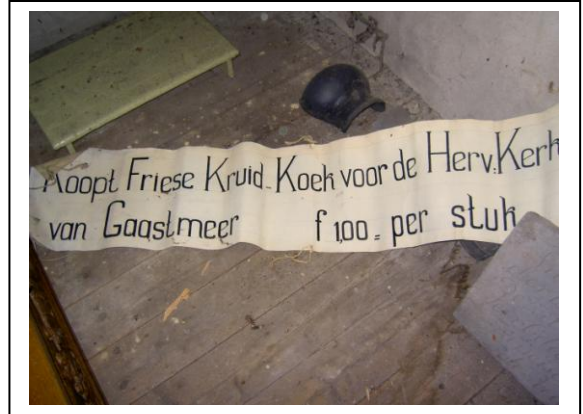 Koopt Friese Kruid-Koek voor de Herv. Kerk
van Gaastmeer f 1,00 = per stuk